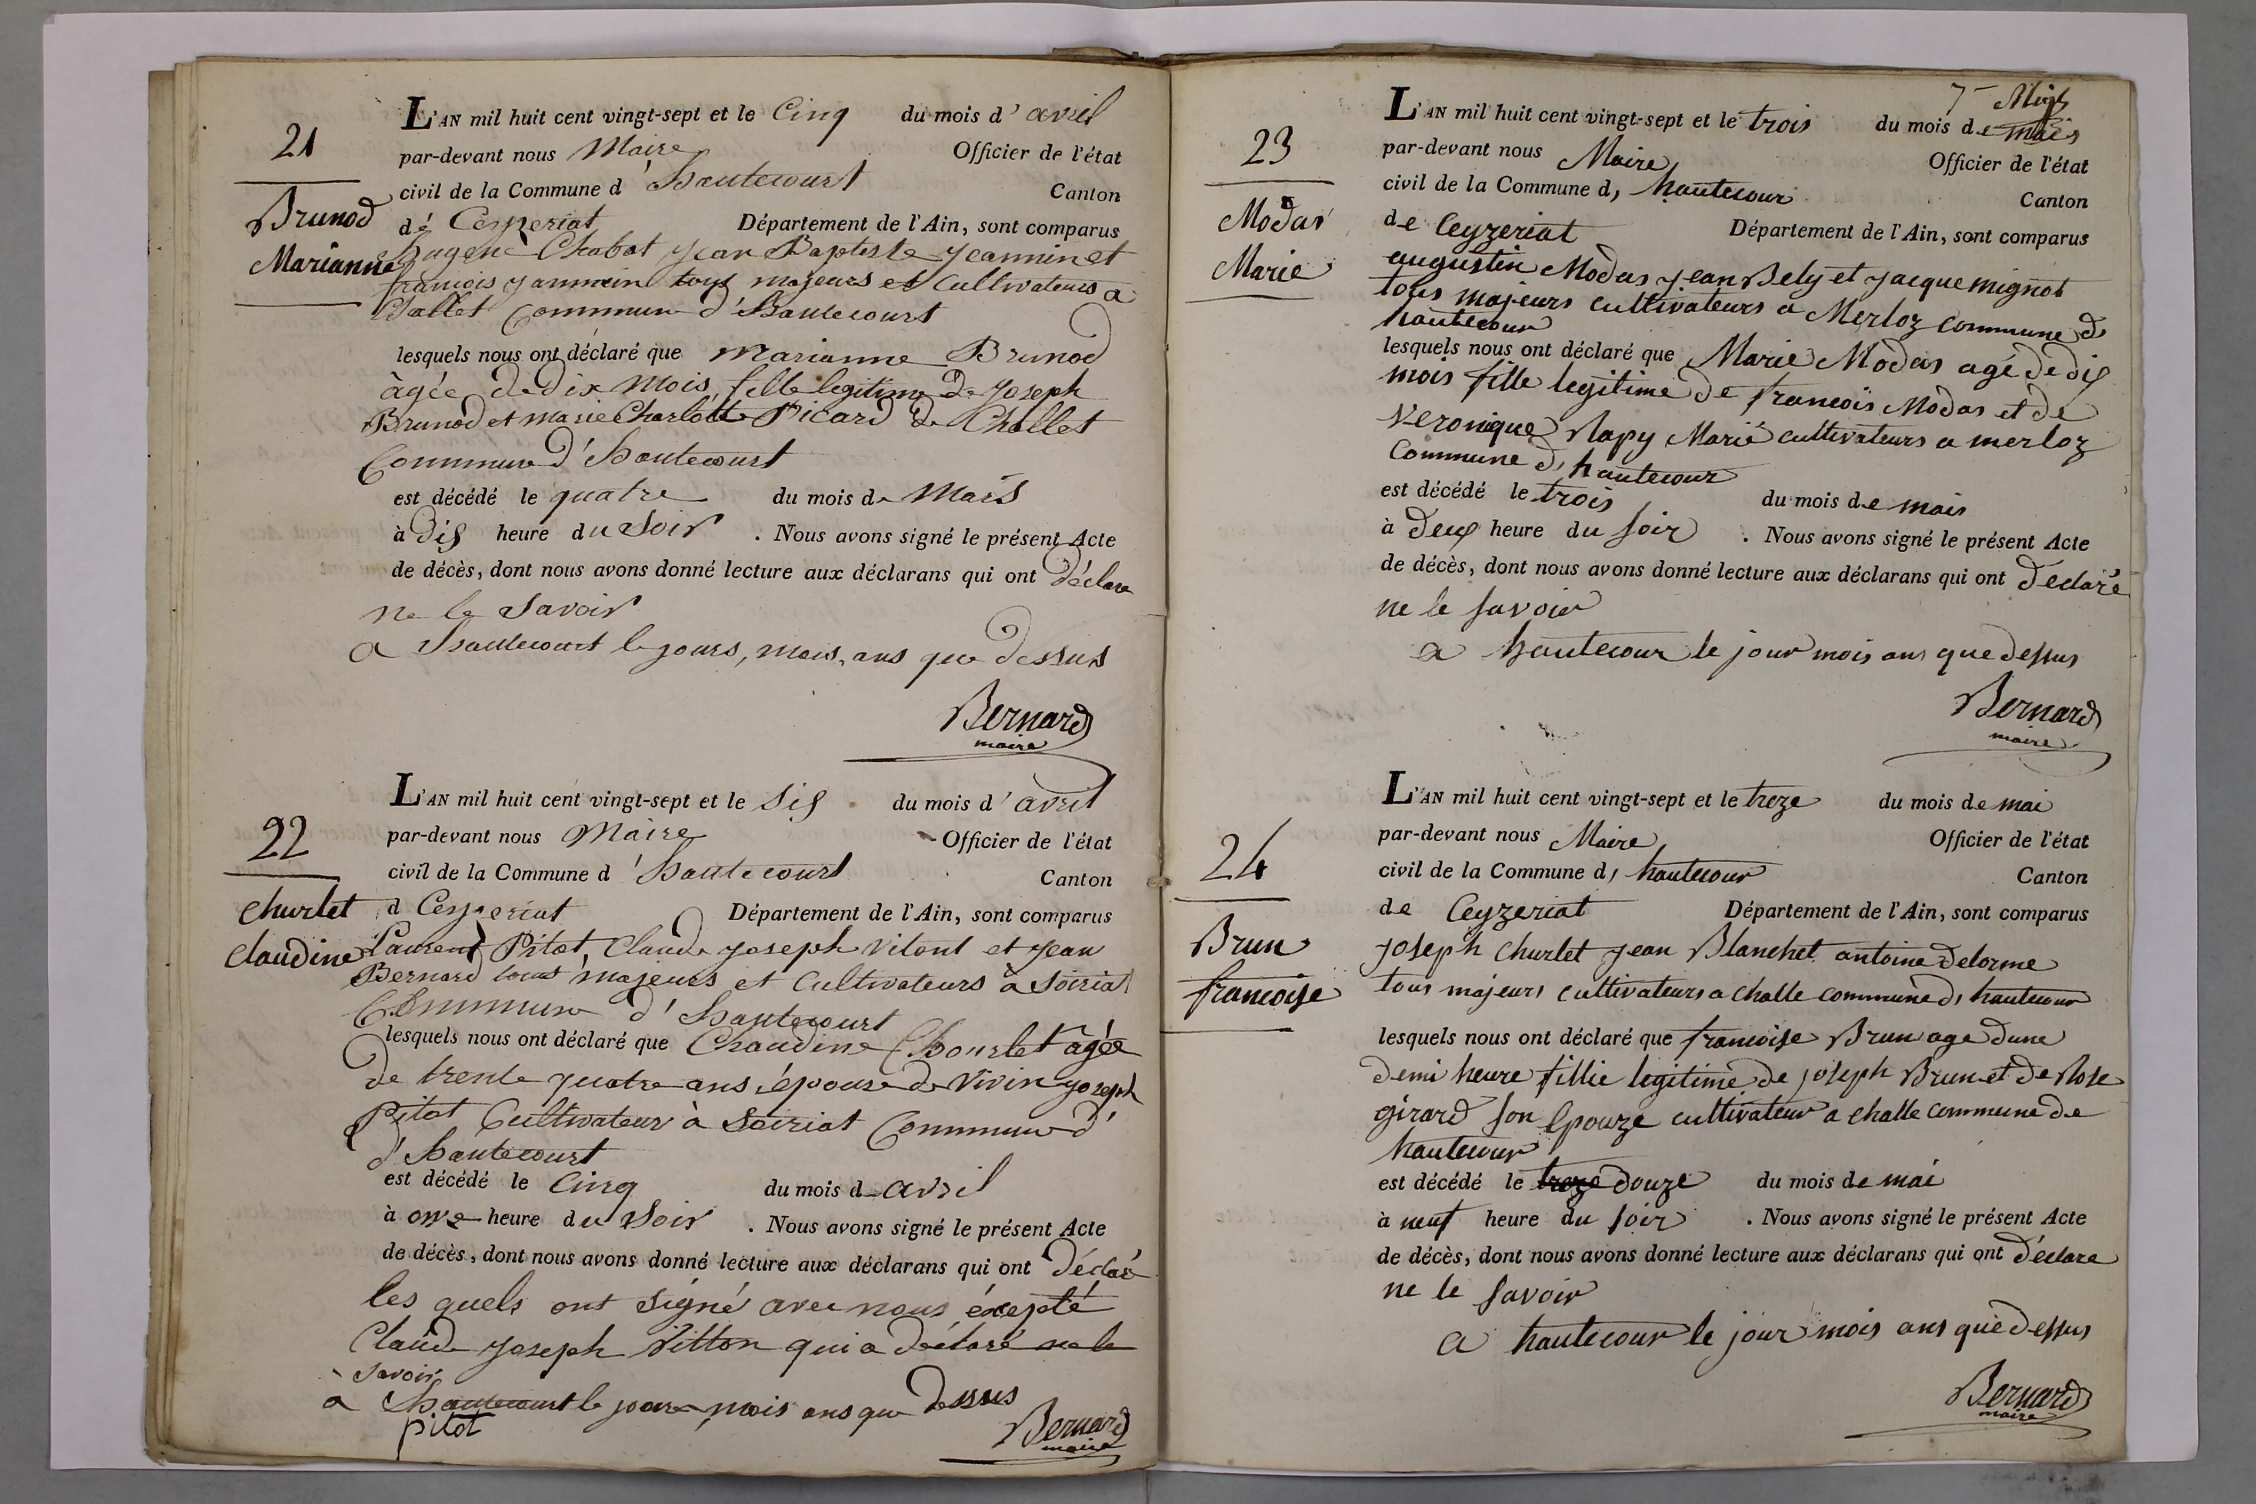 21
Brunod
Marianne
L'AN mil huit cent vingt-sept et le Cinq du mois d' avril
par-devant nous Maire Officier de l'état
civil de la Commune d' hautecourt Canton
de Ceyzeriat Département de l'Ain, sont comparus
hugene Chabot Jean Baptiste Jeannin et
francois Jannin tous majeurs et Cultivateurs a
Challet Commune d'hautecourt
lesquels nous ont déclaré que marianne Brunod
âgée de dix mois fille legitime de Joseph
Brunod et marie Charlotte Picard de Challet
Commune d'hautecourt
est décédé le quatre du mois de Mars
à dix heure du Soir . Nous avons signé le présent Acte
de décès, dont nous avons donné lecture aux déclarans qui ont déclare
ne le Savoir
a hautecourt le jours, mois, ans que dessus
Bernard
maire
22
Churlet
Claudine
L'AN mil huit cent vingt-sept et le Six du mois d' avril
par-devant nous Maire Officier de l'état
civil de la Commune d' hautecourt Canton
d Ceyzeriat Département de l'Ain, sont comparus
Laurent Pitot, Claude Joseph vitont et Jean
Bernard tout majeurs et Cultivateurs à Soiriat
Commune d' hautecourt
lesquels nous ont déclaré que Chaudine Chourlet âgée
de trente quatre ans épouse de vivin Joseph
Pitot Cultivateur à Soiriat Commune d'
d'hautecourt
est décédé le Cinq du mois d avril
à onze heure du Soir . Nous avons signé le présent Acte
de décès, dont nous avons donné lecture aux déclarans qui ont déclaré
les quels ont signé avec nous éxcepté
Claude Joseph Vitton qui a déclaré ne le
Savoir
à hautecourt le jour mois ans que dessus
pitot
Bernard
maire
23
Modas
Marie
7
L'AN mil huit cent vingt-sept et le trois du mois de mais
par-devant nous Maire Officier de l'état
civil de la Commune d, hautecour Canton
de Ceyzeriat Département de l'Ain, sont comparus
augustin Modas jean Bely et jacque mignot
tous majeurs cultivateurs a Merloz commune d
hautecour
lesquels nous ont déclaré que Marie Modas agé de dix
mois fille legitime de francois Modas et de
Veronique Rapy Marié cultivateurs a merloz
Commune d, hautecour
est décédé le trois du mois de mais
à deux heure du soir . Nous avons signé le présent Acte
de décès, dont nous avons donné lecture aux déclarans qui ont declaré
ne le savoir
a hautecour le jour mois ans que dessus
Bernard
maire
24
Brun
francoise
L'AN mil huit cent vingt-sept et le treze du mois de mai
par-devant nous Maire Officier de l'état
civil de la Commune d, hautecour Canton
de Ceyzeriat Département de l'Ain, sont comparus
joseph Churlet jean Blanchet antoine delorme
tous majeurs cultivateurs a challe commune d, hautecour
lesquels nous ont déclaré que francoise Brun age dune
demi heure fillie legitime de joseph Brun et de Rose
girard son Epouze cultivateur a challe commune de
hautecour
est décédé le treze douze du mois de mai
à neuf heure du soir . Nous avons signé le présent Acte
de décès, dont nous avons donné lecture aux déclarans qui ont déclare
ne le savoir
a hautecour le jour mois ans que dessus
Bernard
maire